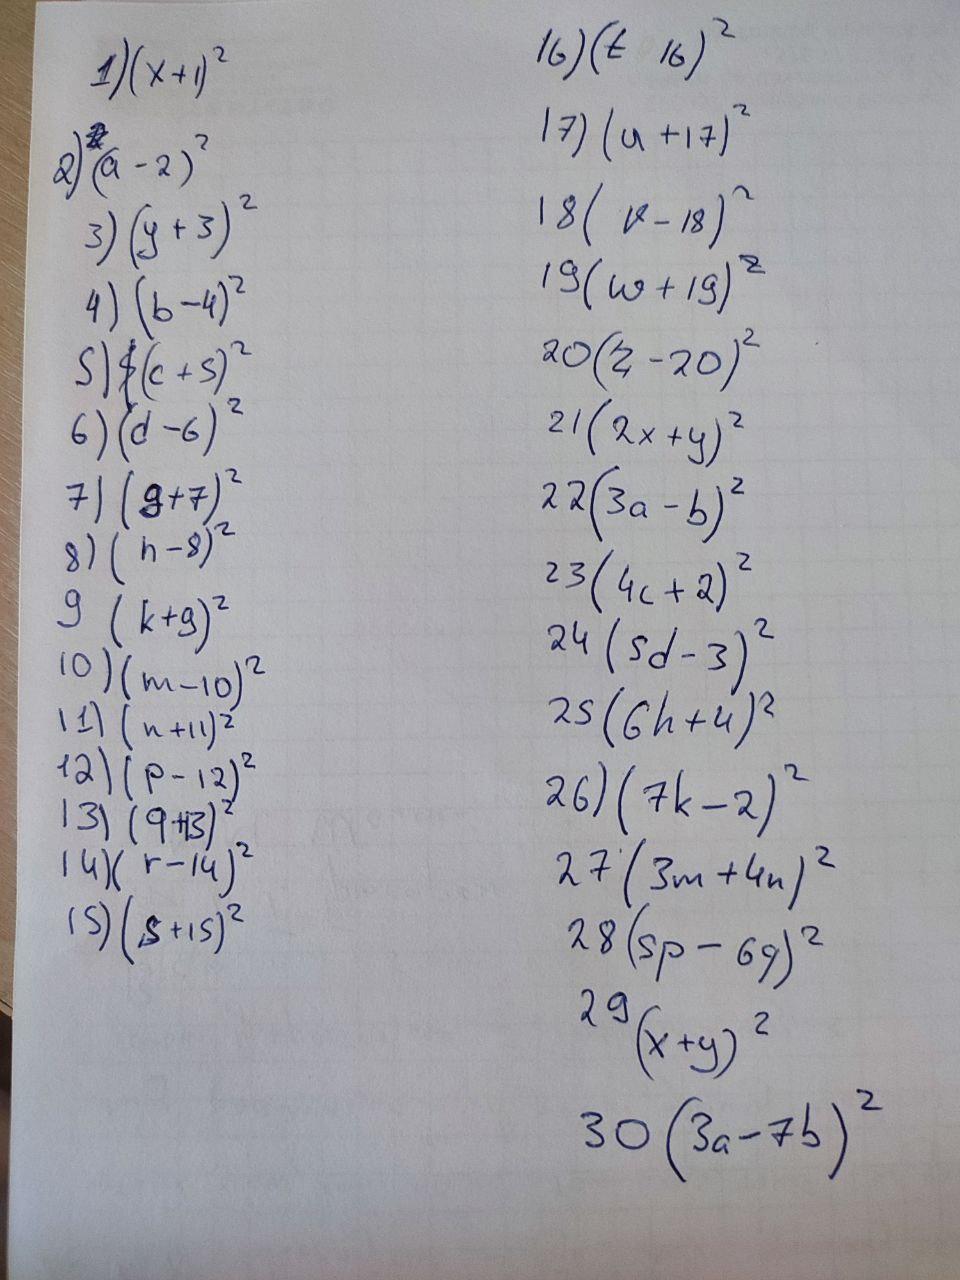 1) (x+1)²
2) (a-2)²
3) (y+3)²
4) (b-4)²
5) (c+5)²
6) (d-6)²
7) (g+7)²
8) (h-8)²
9 (k+9)²
10) (m-10)²
11) (n+11)²
12) (p-12)²
13) (q+13)²
14) (r-14)²
15) (s+15)²
16) (t 16)²
17) (u+17)²
18 (v-18)²
19 (w+19)²
20 (z-20)²
21 (2x+y)²
22 (3a-b)²
23 (4c+2)²
24 (5d-3)²
25 (6h+4)²
26) (7k-2)²
27 (3m+4n)²
28 (5p-6q)²
29 (x+y)²
30 (3a-7b)²